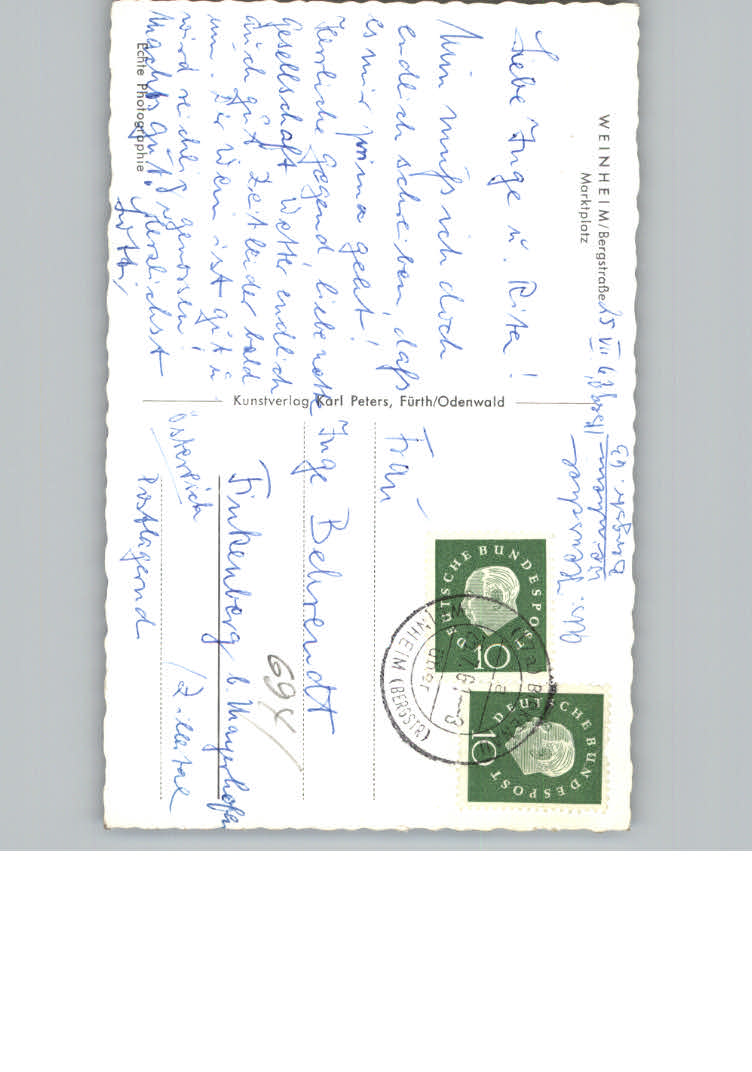 WEINHEIM/Bergstraße
Marktplatz
25. VII. 61
Liebe Inge u. Rita!
Nun muß ich doch
endlich schreiben, daß
es mir prima geht!
Herrliche Gegend, liebe nette
Gesellschaft Wetter endlich
auch gut Zeit leider bald
um. Der Wein ist gut u
wird reichlich genossen!
Macht's gut, Herzlichst
Echte Photographie
Kunstverlag Karl Peters, Fürth/Odenwald
Frau
Inge Behrendt
Finkenberg b. Mayrhofen
/Zillertal
Österreich
Postlagernd
694/
DEUTSCHE BUNDESPOST
10
DEUTSCHE BUNDESPOST
10
WEINHEIM (BERGSTR)